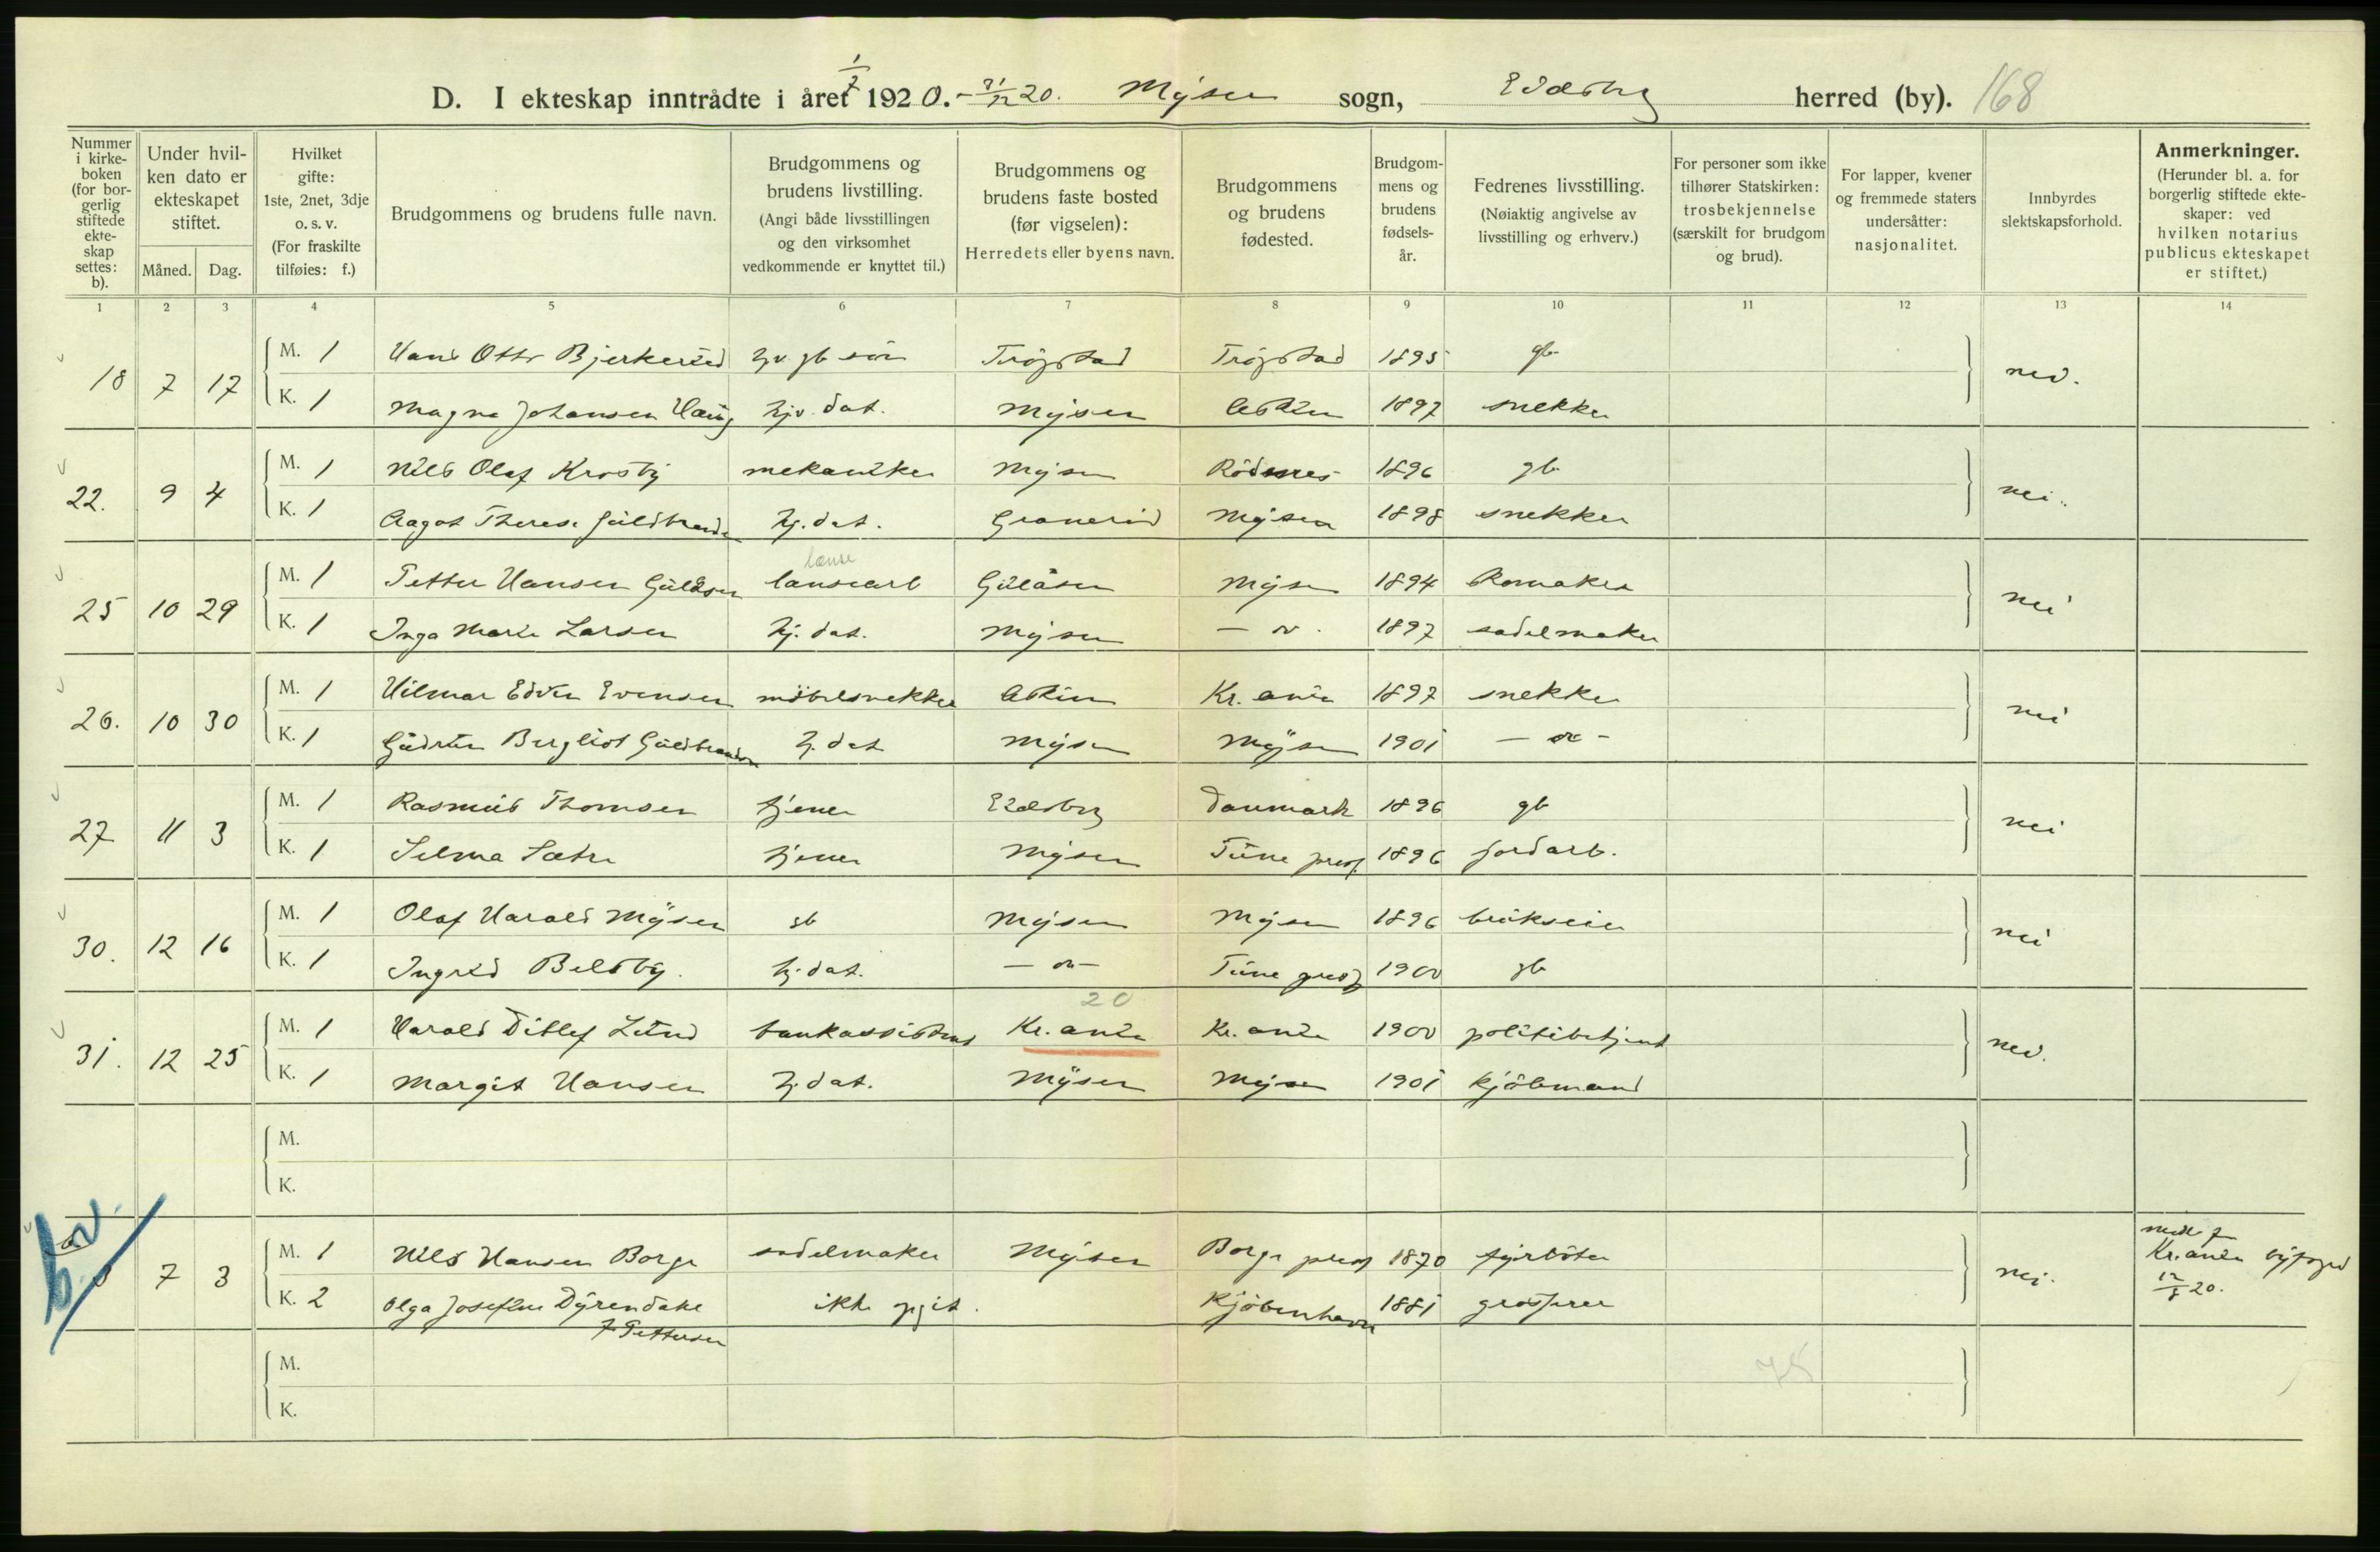 D. I ekteskap inntrådte i året 1/7 1920. - 31/12 20. Mysen sogn, Eidsberg herred (by). 168
Nummer i kirkeboken (for borgerlig stiftede ekteskap settes: b).
Under hvilken dato er ekteskapet stiftet.
Måned. Dag.
Hvilket gifte: 1ste, 2net, 3dje o. s. v. (For fraskilte tilføies: f.)
Brudgommens og brudens fulle navn.
Brudgommens og brudens livstilling. (Angi både livsstillingen og den virksomhet vedkommende er knyttet til.)
Brudgommens og brudens faste bosted (før vigselen): Herredets eller byens navn.
Brudgommens og brudens fødested.
Brudgommens og brudens fødselsår.
Fedrenes livsstilling. (Nøiaktig angivelse av livsstilling og erhverv.)
For personer som ikke tilhører Statskirken: trosbekjennelse (særskilt for brudgom og brud).
For lapper, kvener og fremmede staters undersåtter: nasjonalitet.
Innbyrdes slektskapsforhold.
Anmerkninger. (Herunder bl. a. for borgerlig stiftede ekteskaper: ved hvilken notarius publicus ekteskapet er stiftet.)
1 2 3 4 5 6 7 8 9 10 11 12 13 14
18 7 17 M. 1 Hans Otto Bjerkerud hjv gb sön Trögstad Trögstad 1895 gb nei.
K. 1 Magna Johansen hjv. dat. Mysen Askim 1897 snekker
22. 9 4 M. 1 Nils Olaf Krosby mekaniker Mysen Rödenes 1896 gb nei.
K. 1 Aagot Therese Guldbrandsen hj. dat. Granerud Mysen 1898 snekker
lense
25 10 29 M. 1 Petter Hansen Gulåsen lensearb Gulåsen Mysen 1894 skomaker nei
K. 1 Inga Marie Larsen hj. dat. Mysen — " — 1897 sadelmaker
26. 10 30 M. 1 Hilmar Edvin Evensen möbelsnekker Askim Kr.ania 1897 snekker nei
K. 1 Gudrun Bergliot Guldbrandsen hj. dat Mysen Mysen 1901 — " —
27 11 3 M. 1 Rasmus Thomsen tjener Eidsberg Danmark 1896 gb nei
K. 1 Selma Sætre tjener Mysen Tune presg. 1896 jordarb.
30. 12 16 M. 1 Olaf Harald Mysen gb Mysen Mysen 1896 brukseier nei
K. 1 Ingrid Belsby. hj. dat. — " — Tune presg 1900 gb
20
31. 12 25 M. 1 Harald Ditlef Lund bankassistent Kr.ania Kr.ania 1900 politibetjent nei.
K. 1 Margit Hansen hj. dat. Mysen Mysen 1901 kjöbmand
M.
K.
b.v. 7 3 M. 1 Nils Hansen Borge sadelmaker Mysen Borge presg 1870 fyrböter nei.
K. 2 Olga Josefine Dyrendahl ikke opgit. Kjöbenhavn 1881 grosserer
f Pettersen
Kr.ania byfoged
20.
M. 75
K.